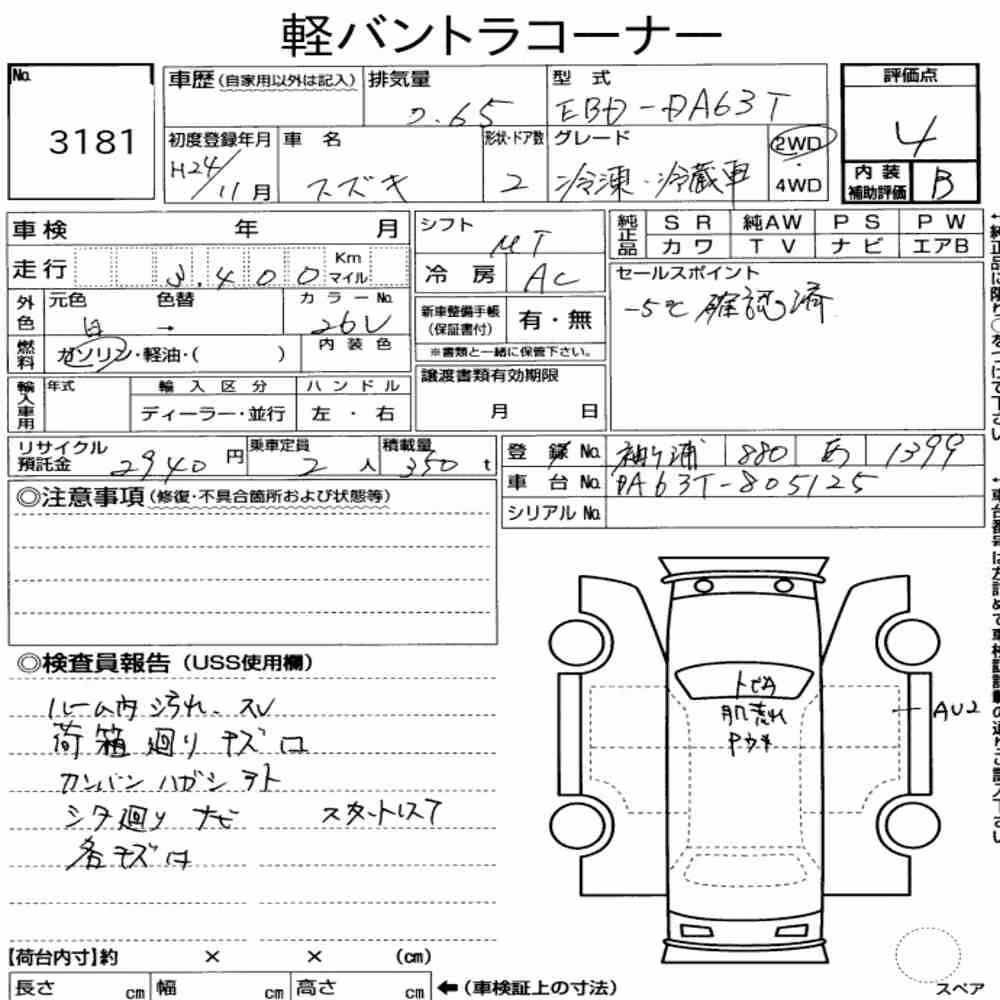 軽バントラコーナー
No.
3181
車歴(自家用以外は記入)
排気量
0.65
型式
EBD-DA63T
評価点
4
内装補助評価
B
初度登録年月
H24/11月
車名
スズキ
形状・ドア数
2
グレード
冷凍・冷蔵車
2WD
・
4WD
車検 年 月
走行 3,400 Km マイル
シフト
MT
冷房
AC
純正品
SR 純AW PS PW
カワ TV ナビ エアB
セールスポイント
-5℃ 確認済
外色
元色 白
色替 →
カラーNo.
26U
燃料
ガソリン・軽油・( )
内装色
新車整備手帳
(保証書付)
有・無
※書類と一緒に保管下さい。
譲渡書類有効期限
月 日
輸入車用
年式
輸入区分
ディーラー・並行
ハンドル
左・右
リサイクル預託金
2940円
乗車定員
2人
積載量
350t
登録No.
袖ヶ浦 880 あ 1399
車台No.
DA63T-805125
シリアルNo.
◎注意事項(修復・不具合箇所および状態等)
◎検査員報告(USS使用欄)
ルーム内 汚れ、スレ
荷箱廻り キズ凹
カンバン ハガシ アト
シタ廻り サビ
各キズ凹
トビA
肌荒れ
Pウキ
AU2
【荷台内寸】約 × × (cm)
長さ cm 幅 cm 高さ cm
←(車検証上の寸法)
スペア